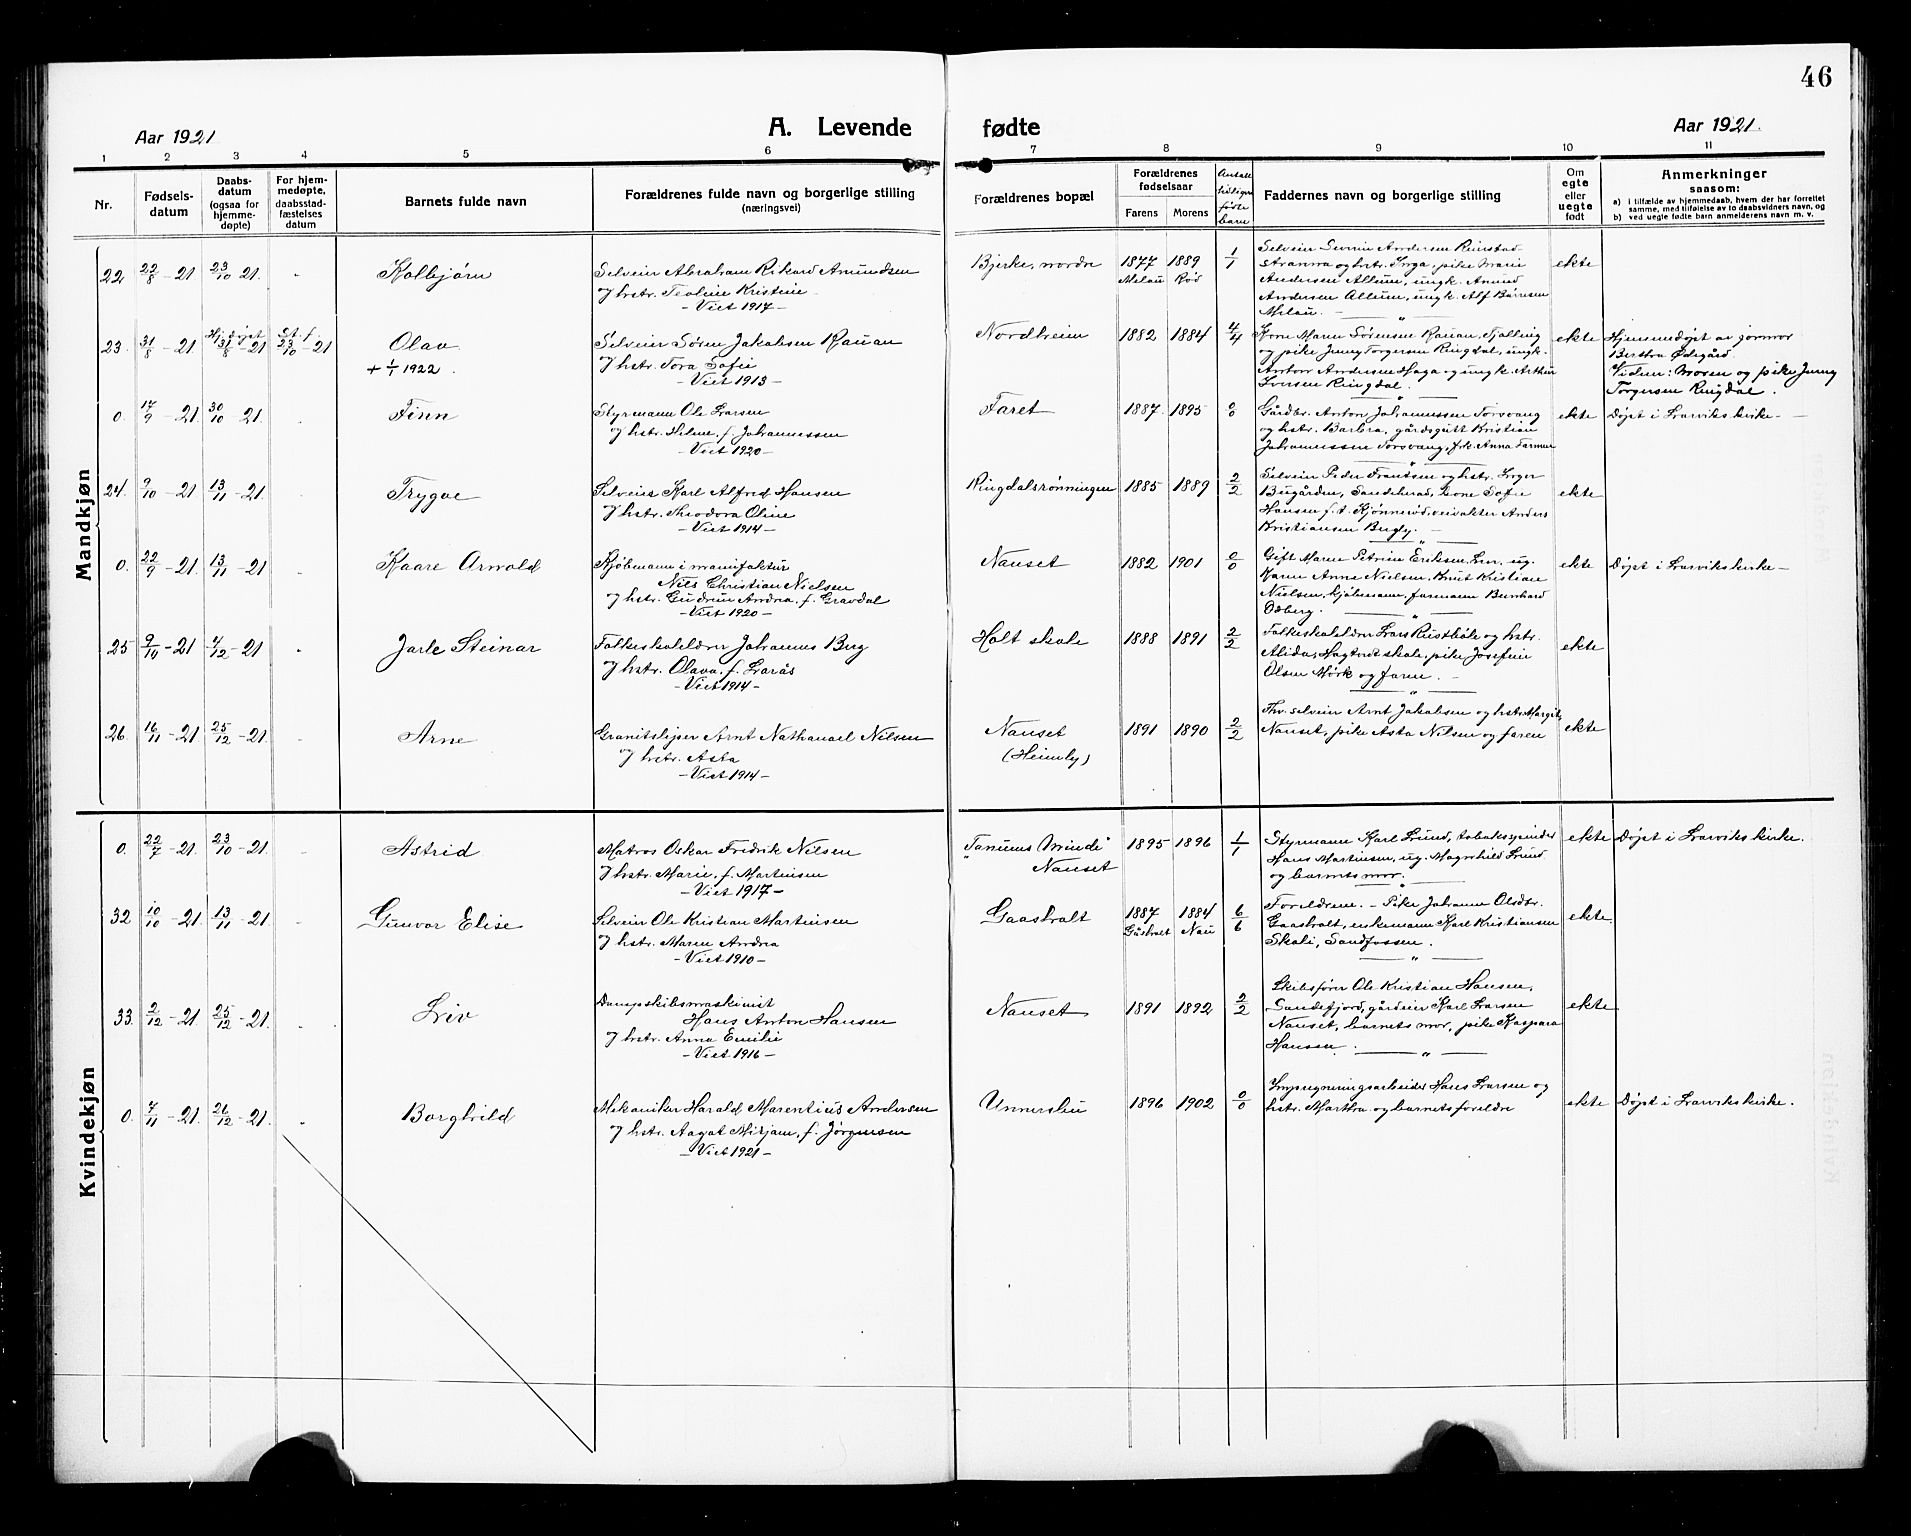 46
Aar 1921
A. Levende fødte
Aar 1921.
1 2 3 4 5 6 7 8 9 10 11
Nr.
Fødsels-
datum
Daabs-
datum
(ogsaa for
hjemme-
døpte)
For hjem-
medøpte,
daabsstad-
fæstelses
datum
Barnets fulde navn
Forældrenes fulde navn og borgerlige stilling
(næringsvei)
Forældrenes bopæl
Forældrenes
fødselsaar
Farens Morens
Antall
tidligere
fødte
barn
Faddernes navn og borgerlige stilling
Om
egte
eller
uegte
født
Anmerkninger
saasom:
a) i tilfælde av hjemmedaab, hvem der har forrettet
samme, med tilføielse av to daabsvidners navn, og
b) ved uegte fødte barn anmelderens navn m. v.
Mandkjøn
22. 22/8 - 21 23/10 21. Kolbjørn
Selveier Abraham Rikard Amundsen
og hstr. Teoline Kristine
- Viet 1917 -
Bjerke, nordre 1877 1889 1/1
Melau Rød
Selveier Severin Andersen Rimstad
stranna og hstr. Inga, pike Marie
Andersen Allum, ungk. Amund
Andersen Allum, ungk. Alf Børresen
Melau.
ekte
23. 31/8 - 21 Hj.døpt 31/8 - 21 St. f. 23/10 - 21 Olav
+ 1/1 1922.
Selveier Søren Jakobsen Rauan
og hstr. Tora Sofie
- Viet 1913 -
Nordheim 1882 1884 4/4
Kone Maren Sørensen Rauan, Tjølling
og pike Jenny Torgersen Ringdal, ungk.
Anton Andersen Haga og ungk. Arthur
Ionsen Ringdal.
ekte
Hjemmedøpt av jormor
Bertha Ødegård.
Vidner: Moren og pike Jenny
Torgersen Ringdal.
0. 17/9 - 21 30/10 - 21. Finn
Styrmann Ole Larsen
og hstr. Helene, f. Johannessen
- Viet 1920 -
Faret 1887 1895 0/0
Gårdbr. Anton Johannessen Torsvang
og hstr. Barbra, gårdsgutt Kristian
Johannessen Torsvang, frk. Anna Farmen
ekte Døpt i Larviks kirke -
24. 9/10 - 21 13/11 - 21. Trygve
Selveier Karl Alfred Hansen
og hstr. Theodora Oline
- Viet 1914 -
Ringdalsrønningen 1885 1889 2/2
Selveier Peder Frantsen og hstr. Inger
Bugården, Sandeherad, kone Sofie
Hansen f. t. Kjønnerød, veivakter Anders
Kristiansen Bugby.
ekte
0. 22/9 - 21. 13/11 - 21 Kaare Arnold
Kjøbmann i manufaktur
Nils Christian Nielsen
og hstr. Gudrun Andrea, f. Gravdal
- Viet 1920 -
Nanset 1882 1901 0/0
Gift Maren Petrine Eriksen, Lrv., ug.
Karen Anne Nielsen, Knut Kristian
Nielsen, kjøbmann, formann Bernhard
Odberg.
ekte Døpt i Larviks kirke -
25 9/11 - 21 4/12 - 21 Jarle Steinar
Folkeskolelærer Johannes Berg
og hstr. Olava, f. Lorås
- Viet 1914 -
Holt skole 1888 1891 2/2
Folkeskolelærer Lars Ristbøle og hstr.
Alida, Hogtvedt skole, pike Josefine
Olsen Mørk og faren.
ekte
26. 16/11 - 21 25/12 - 21. Arne
Granitsliper Arnt Nathanael Nilsen
og hstr. Asta
- Viet 1914 -
Nanset 1891 1890 2/2
(Heimly)
Fhv. selveier Arnt Jakobsen og hstr. Margit,
Nanset, pike Asta Nilsen og faren
ekte
Kvindekjøn
0. 22/7 - 21. 23/10 - 21 Astrid
Matros Oskar Fredrik Nilsen
og hstr. Marie, f. Martinsen
- Viet 1917 -
"Tanums Minde" 1895 1896 1/1
Nanset
Styrmann Karl Lund, tobakspinder
Hans Martinsen, ug. Magnhild Lund
og barnets mor.
ekte Døpt i Larviks kirke.
32 10/10 - 21. 13/11 - 21. Gunvor Elise
Selveier Ole Kristian Martinsen
og hstr. Maren Andrea
- Viet 1910 -
Gaasholt 1887 1884 6/6
Gåsholt Nau
Foreldrene. - Pike Johanne Olsdtr.
Gaasholt, enkemann Karl Kristiansen
Skoli, Sandfossen.
ekte.
33. 2/12 - 21. 25/12 - 21. Liv
Dampskibsmaskinist
Hans Anton Hansen
og hstr. Anna Emilie
- Viet 1916 -
Nanset 1891 1892 2/2
Skibsfører Ole Kristian Hansen,
Sandefjord, gårdeier Karl Larsen
Nanset, barnets mor, pike Kaspara
Hansen.
ekte
0. 7/11 - 21. 26/12 - 21. Borghild
Mekaniker Harald Marentius Andersen
og hstr. Aagot Mirjam, f. Jørgensen
- Viet 1921 -
Unnersbu 1896 1902 0/0
Impregneringsarbeider Hans Larsen og
hstr. Martha og barnets foreldre
ekte Døpt i Larviks kirke.